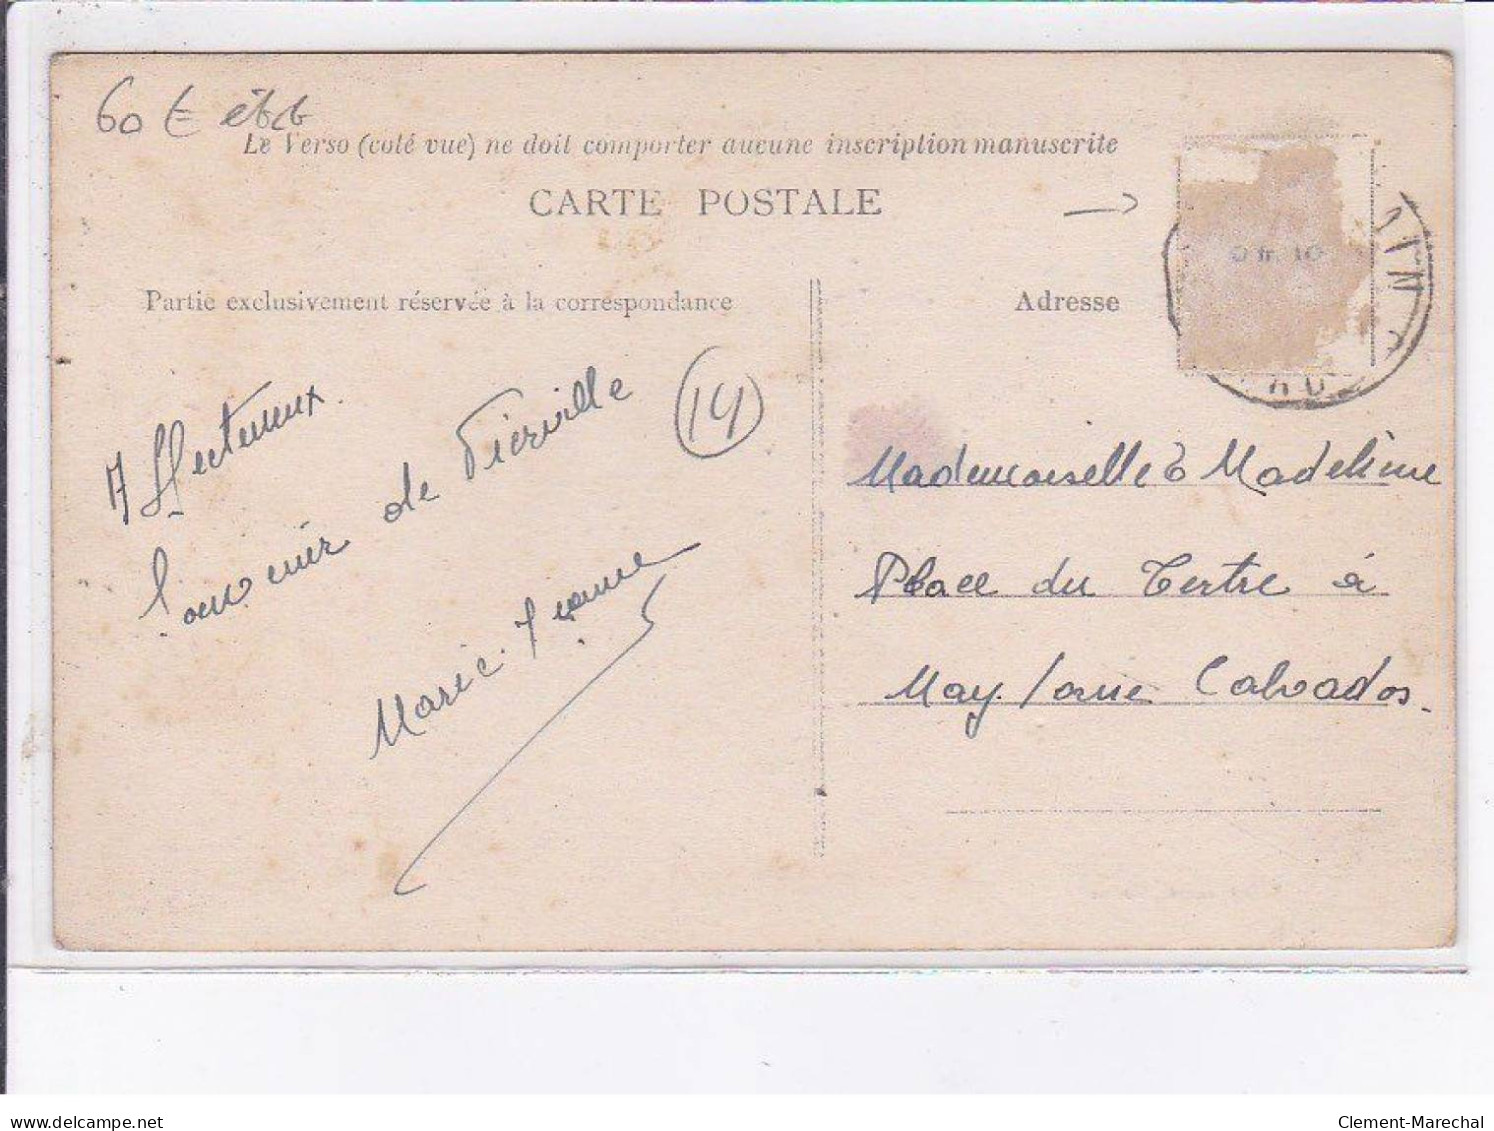 60 €
Le Verso (coté vue) ne doit comporter aucune inscription manuscrite
CARTE POSTALE
0 fr. 10
Partie exclusivement réservée à la correspondance
Adresse
14
Affectueux
Souvenir de Vierville
Marie-Jeanne
Mademoiselle Madeleine
Place du Tertre à
May S/ Orne Calvados.
delcampe.net
Clement-Marechal